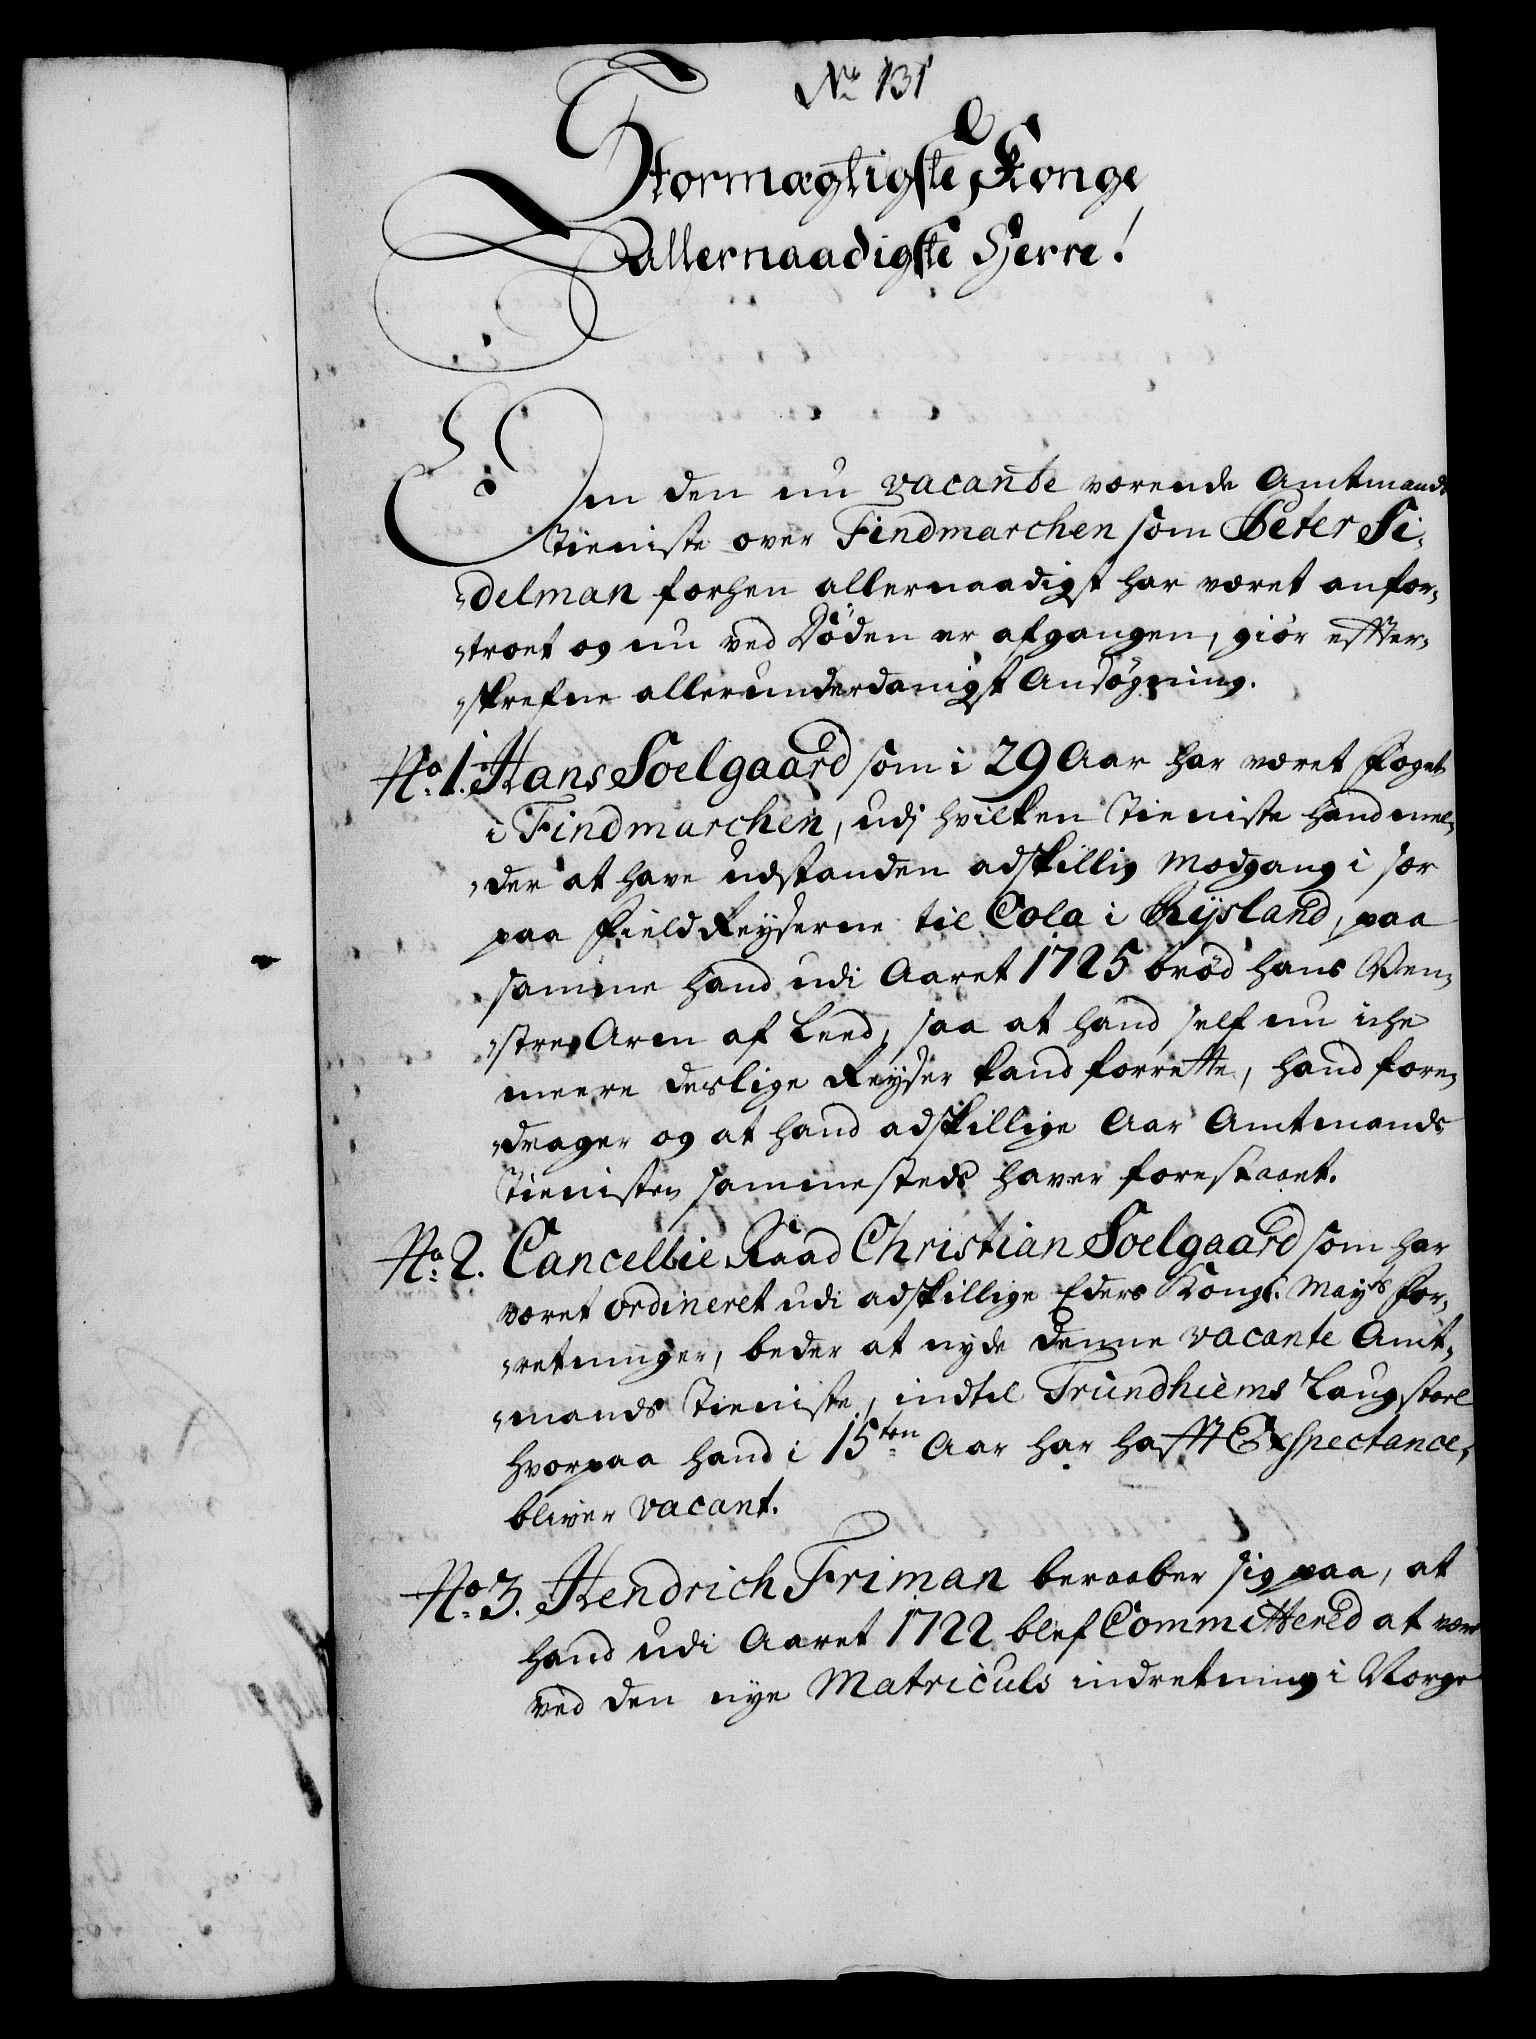 No 131
Stormægtigste Konge
allernaadigste Herre!
Om den nu vacante værende Amtmands
Tieniste over Findmarchen som Peter Fi-
delman forhen allernaadigst har været anfor-
troet og nu ved Döden er afgangen, giör effter-
skrefne allerunderdanigst Ansögning.
No: 1. Hans Soelgaard som i 29 Aar har været Foget
i Findmarchen, udj hvilken Tieniste hand mel-
der at have udstanden adskillig Modgang i sær
paa Field Reyserne til Cola i Rysland, paa
samme hand udi Aaret 1725 bröd hans Ven-
stre Arm af Leed, saa at hand self nu iche
meere deslige Reyser kand forrette, hand fore-
drager og at hand adskillige Aar Amtmands
Tienisten sammesteds haver forestaaet.
No: 2. Cancellie Raad Christian Soelgaard som har
været ordineret udi adskillige Eders Kongl. Mayts For-
retninger, beder at nyde denne vacante Amt-
mands Tieniste, indtil Trundhiems Laugstoel
hvorpaa hand i 15ten Aar har hafft Exspectance,
bliver vacant.
No: 3. Hendrich Friman beraaber sig paa, at
hand udi Aaret 1722 blef Committered at være
ved den nye Matriculs indretning i Norge